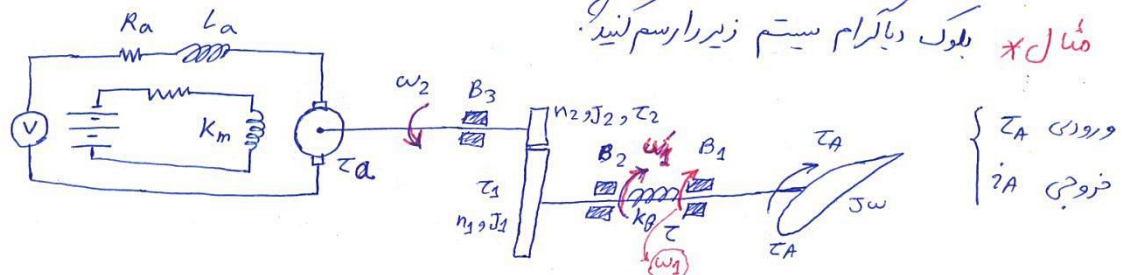 مثال * بلوک دیاگرام سیستم زیر را رسم کنید؟
Ra La
V
Km
τa
ω2
B3
n2, J2, τ2
τ1
n1, J1
B2 ω'1 B1
kθ τ
ω1
τA
Jω
τA
ورودی τA
خروجی iA